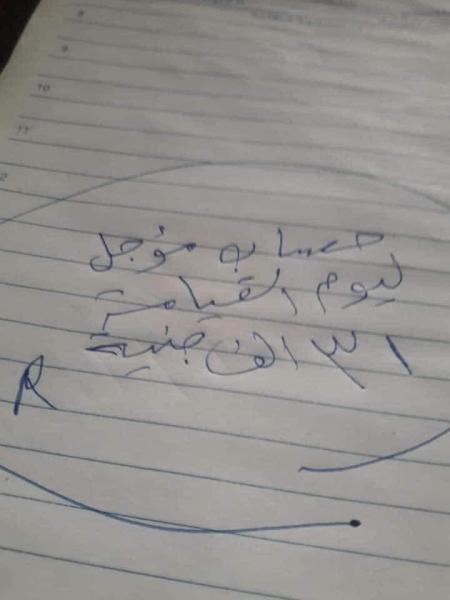 8
9
10
11
2
حساب مؤجل
ليوم القيامة
٣١ الف جنية
R